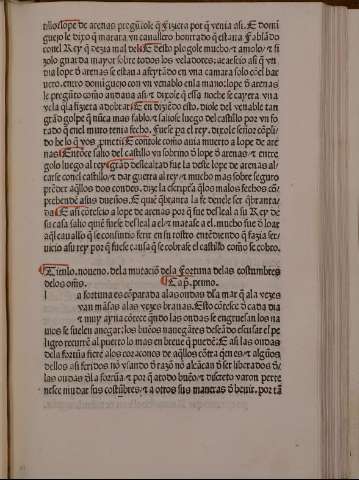 de arenas pregūtole q̄ fiziera por q̄ venia asi. E domī
guejo le dixo q̄ matara vn cauallero honrrado q̄ estaua fablādo
conel Rey q̄ dezia mal del. E desto plogole mucho / ⁊ amolo / ⁊ fi
zolo guarda mayor sobre todos los veladores: acaescio asi q̄ vn
dia lope đ arenas se estaua afeytādo en vna camara solo cōel bar
uero. entro domiguejo con vn venablo enla mano: lope đ arenas
le pregūto como andaua asi / ⁊ dixole q̄ essa noche se cayera vna
vela q̄ la fiziera adobar: E en diziēdo esto. diole del venable tan
grād golpe q̄ nūca mas fablo / ⁊ saliose luego del castillo por vn fo
rado q̄ enel muro tenia fecho. Fuese pa el rey. dixole señor cōpli
do he lo q̄ vos E contole como auia muerto a lope de are
nas. Entōce salio del castillo vn sobrino đ lope đ arenas ⁊ entre
golo luego al rey: grād deslealtad fue la deste lope de arenas al
çarse conel castillo / ⁊ dar guerra al rey / ⁊ mucho mas sobre seguro
prēder aq̄llos dos condes. dize la escriptura q̄ los malos fechos cō
prehendē a sus dueños. E quiē q̄branta la fe deuele ser q̄branta/
da. E asi cōtescio a lope de arenas por que fue desleal a su Rey de
su casa salio quiē fuese desleal a el / ⁊ matase a el. mucho fue đ loar
aq̄l cauallo q̄ se consintio ferir en su rostro entēdiendo q̄ fazia ser/
uicio a su rey por q̄ fuese causa q̄ se cobrase el castillo como se cobro.
Titulo. noueno. dela mutaciō dela fortuna de las costumbres
delos oms. Cap̄. primo.
l a fortuna es cōparada alas ondas dla mar q̄ ala vezes
van māsas alas vezes brauas. Esto cōtesce đ cada dia
⁊ muy ayna cōtece q̄ndo las ondas se engruesan los na
uios se suelen anegar: los buēos nauegātes deseādo escusar el pe
ligro recurrē al puerto lo mas en breue q̄ puedē: E asi las ondas
dela fortūa fierē alos coraçones de aq̄llos cōtra q̄en es / ⁊ algūos
dellos asi feridos nō vsando đ razō nō alcāçan đ ser librados đ
las ondas dla fortūa / ⁊ por q̄ a todo buēo / ⁊ discreto varon perte
nesce mudar sus costūbres / ⁊ a otros sus maneras đ beuir. por tā